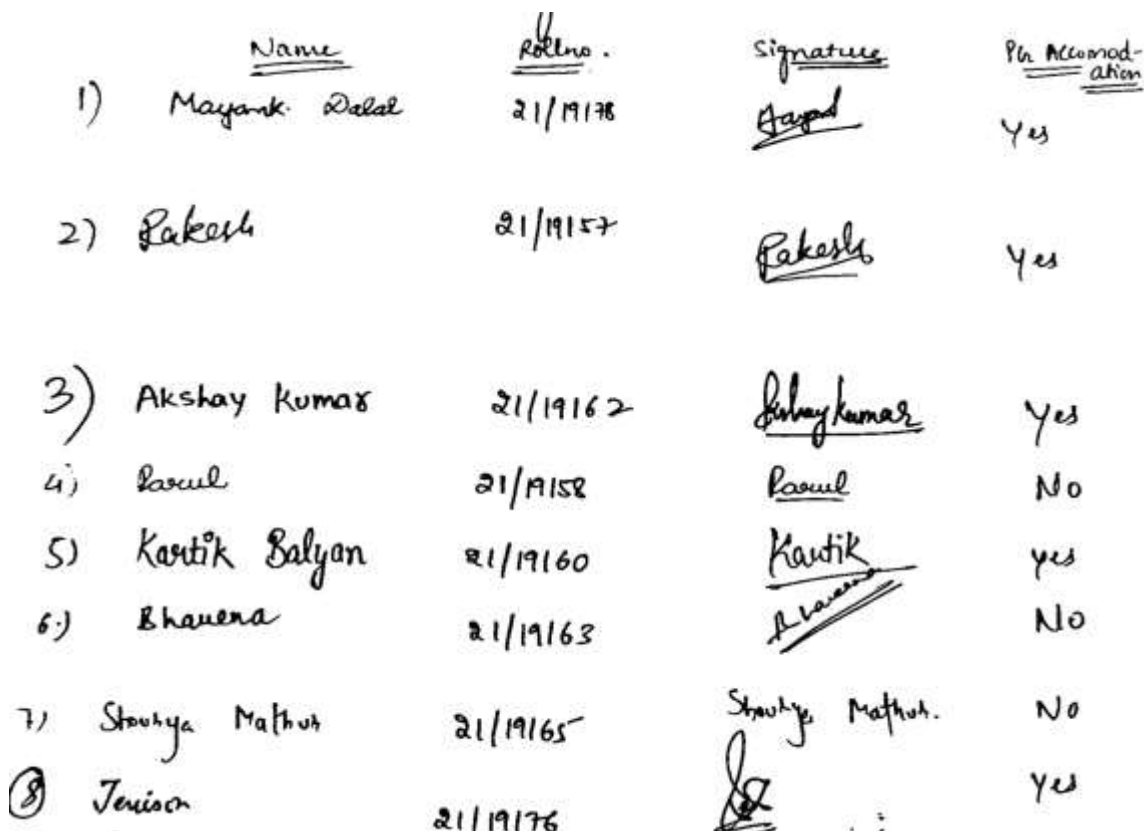 Name Rollno. Signature PG Accomod-
ation
1) Mayank Dalal 21/19178 Yes
2) Rakesh 21/19157 Rakesh Yes
3) Akshay Kumar 21/19162 Akshay Kumar Yes
4) Parul 21/19158 Parul No
5) Kartik Balyan 21/19160 Kartik yes
6.) Bhavena 21/19163 No
7) Shourya Mathur 21/19165 Shourya Mathur. No
8 Jenison 21/19176 Yes